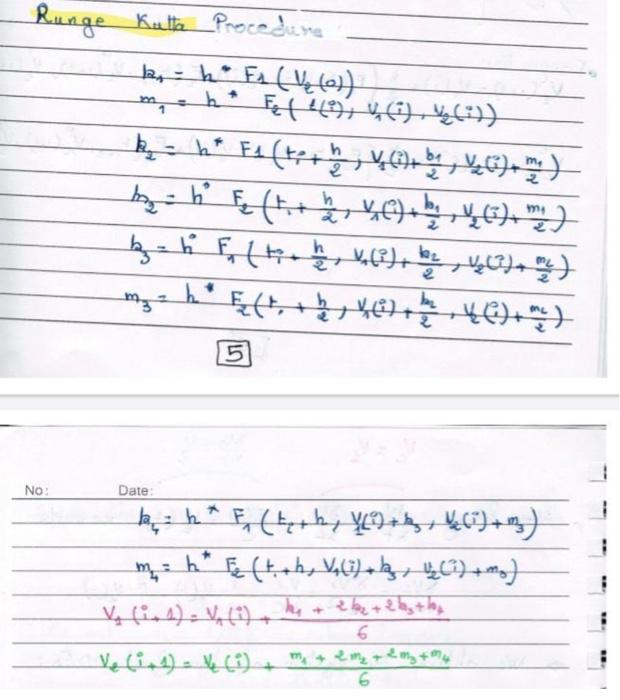 Runge Kutta Procedure
k₁ = h* F1 (V₂(0))
m₁ = h* F₂ ( t(i), V₁(i), V₂(i))
k₂ = h* F1 (tᵢ + h/2, V₁(i) + k₁/2, V₂(i) + m₁/2)
k₂ = h* F₂ (tᵢ + h/2, V₁(i) + k₁/2, V₂(i) + m₁/2)
k₃ = h* F₁ (tᵢ + h/2, V₁(i) + k₂/2, V₂(i) + m₂/2)
m₃ = h* F₂ (tᵢ + h/2, V₁(i) + k₂/2, V₂(i) + m₂/2)
5
No: Date:
k₄ = h* F₁ (tᵢ + h, V₁(i) + k₃, V₂(i) + m₃)
m₄ = h* F₂ (tᵢ + h, V₁(i) + k₃, V₂(i) + m₃)
V₁ (i+1) = V₁(i) + (k₁ + 2k₂ + 2k₃ + k₄)/6
V₂ (i+1) = V₂(i) + (m₁ + 2m₂ + 2m₃ + m₄)/6